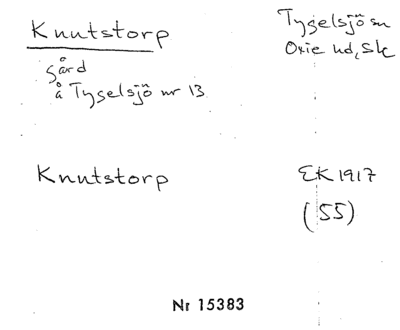 Knutstorp
Tygelsjö sn
Oxie hd, Sk
gård
å Tygelsjö nr 13
Knutstorp
EK 1917
(55)
Nr 15383